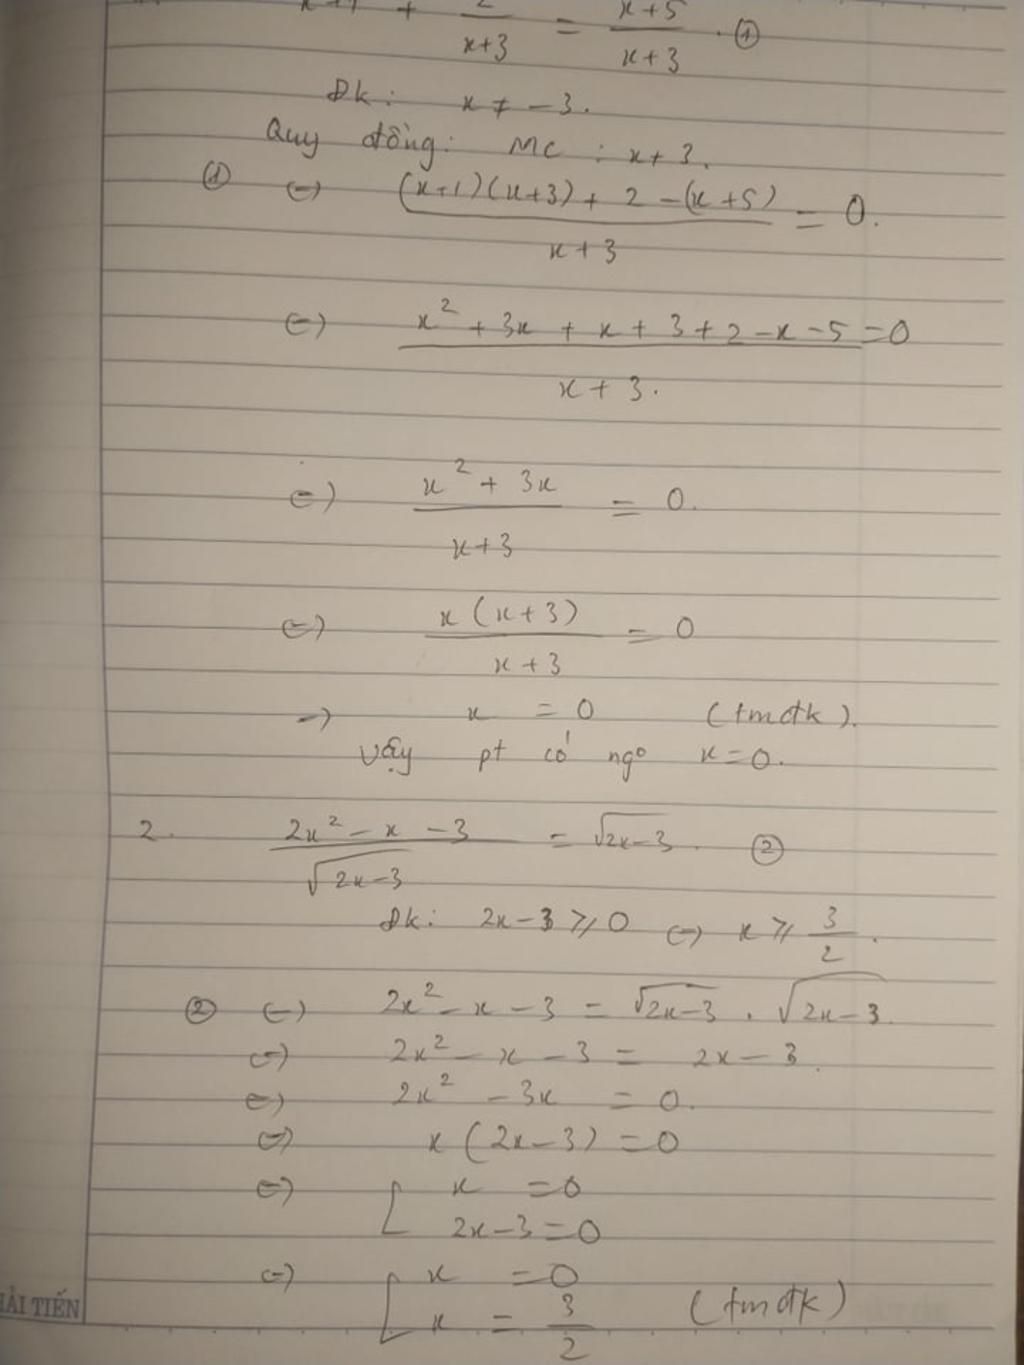 x+1 + 2/(x+3) = (x+5)/(x+3). ①
Đk: x ≠ -3.
Quy đồng: MC : x+3.
① (=) ((x+1)(x+3) + 2 - (x+5))/(x+3) = 0.
(=) (x² + 3x + x + 3 + 2 - x - 5)/(x+3.) = 0
(=) (x² + 3x)/(x+3) = 0.
(=) (x(x+3))/(x+3) = 0
=) x = 0 (tmđk).
Vậy pt có ngo x=0.
2. (2x² - x - 3)/√(2x-3) = √(2x-3). ②
Đk: 2x-3 ⩾ 0 (=) x ⩾ 3/2.
② (=) 2x² - x - 3 = √(2x-3) . √(2x-3).
(=) 2x² - x - 3 = 2x - 3.
(=) 2x² - 3x = 0.
(=) x(2x-3) = 0
(=) [ x = 0
2x-3 = 0
(=) [ x = 0
x = 3/2 (tmđk)
HẢI TIẾN